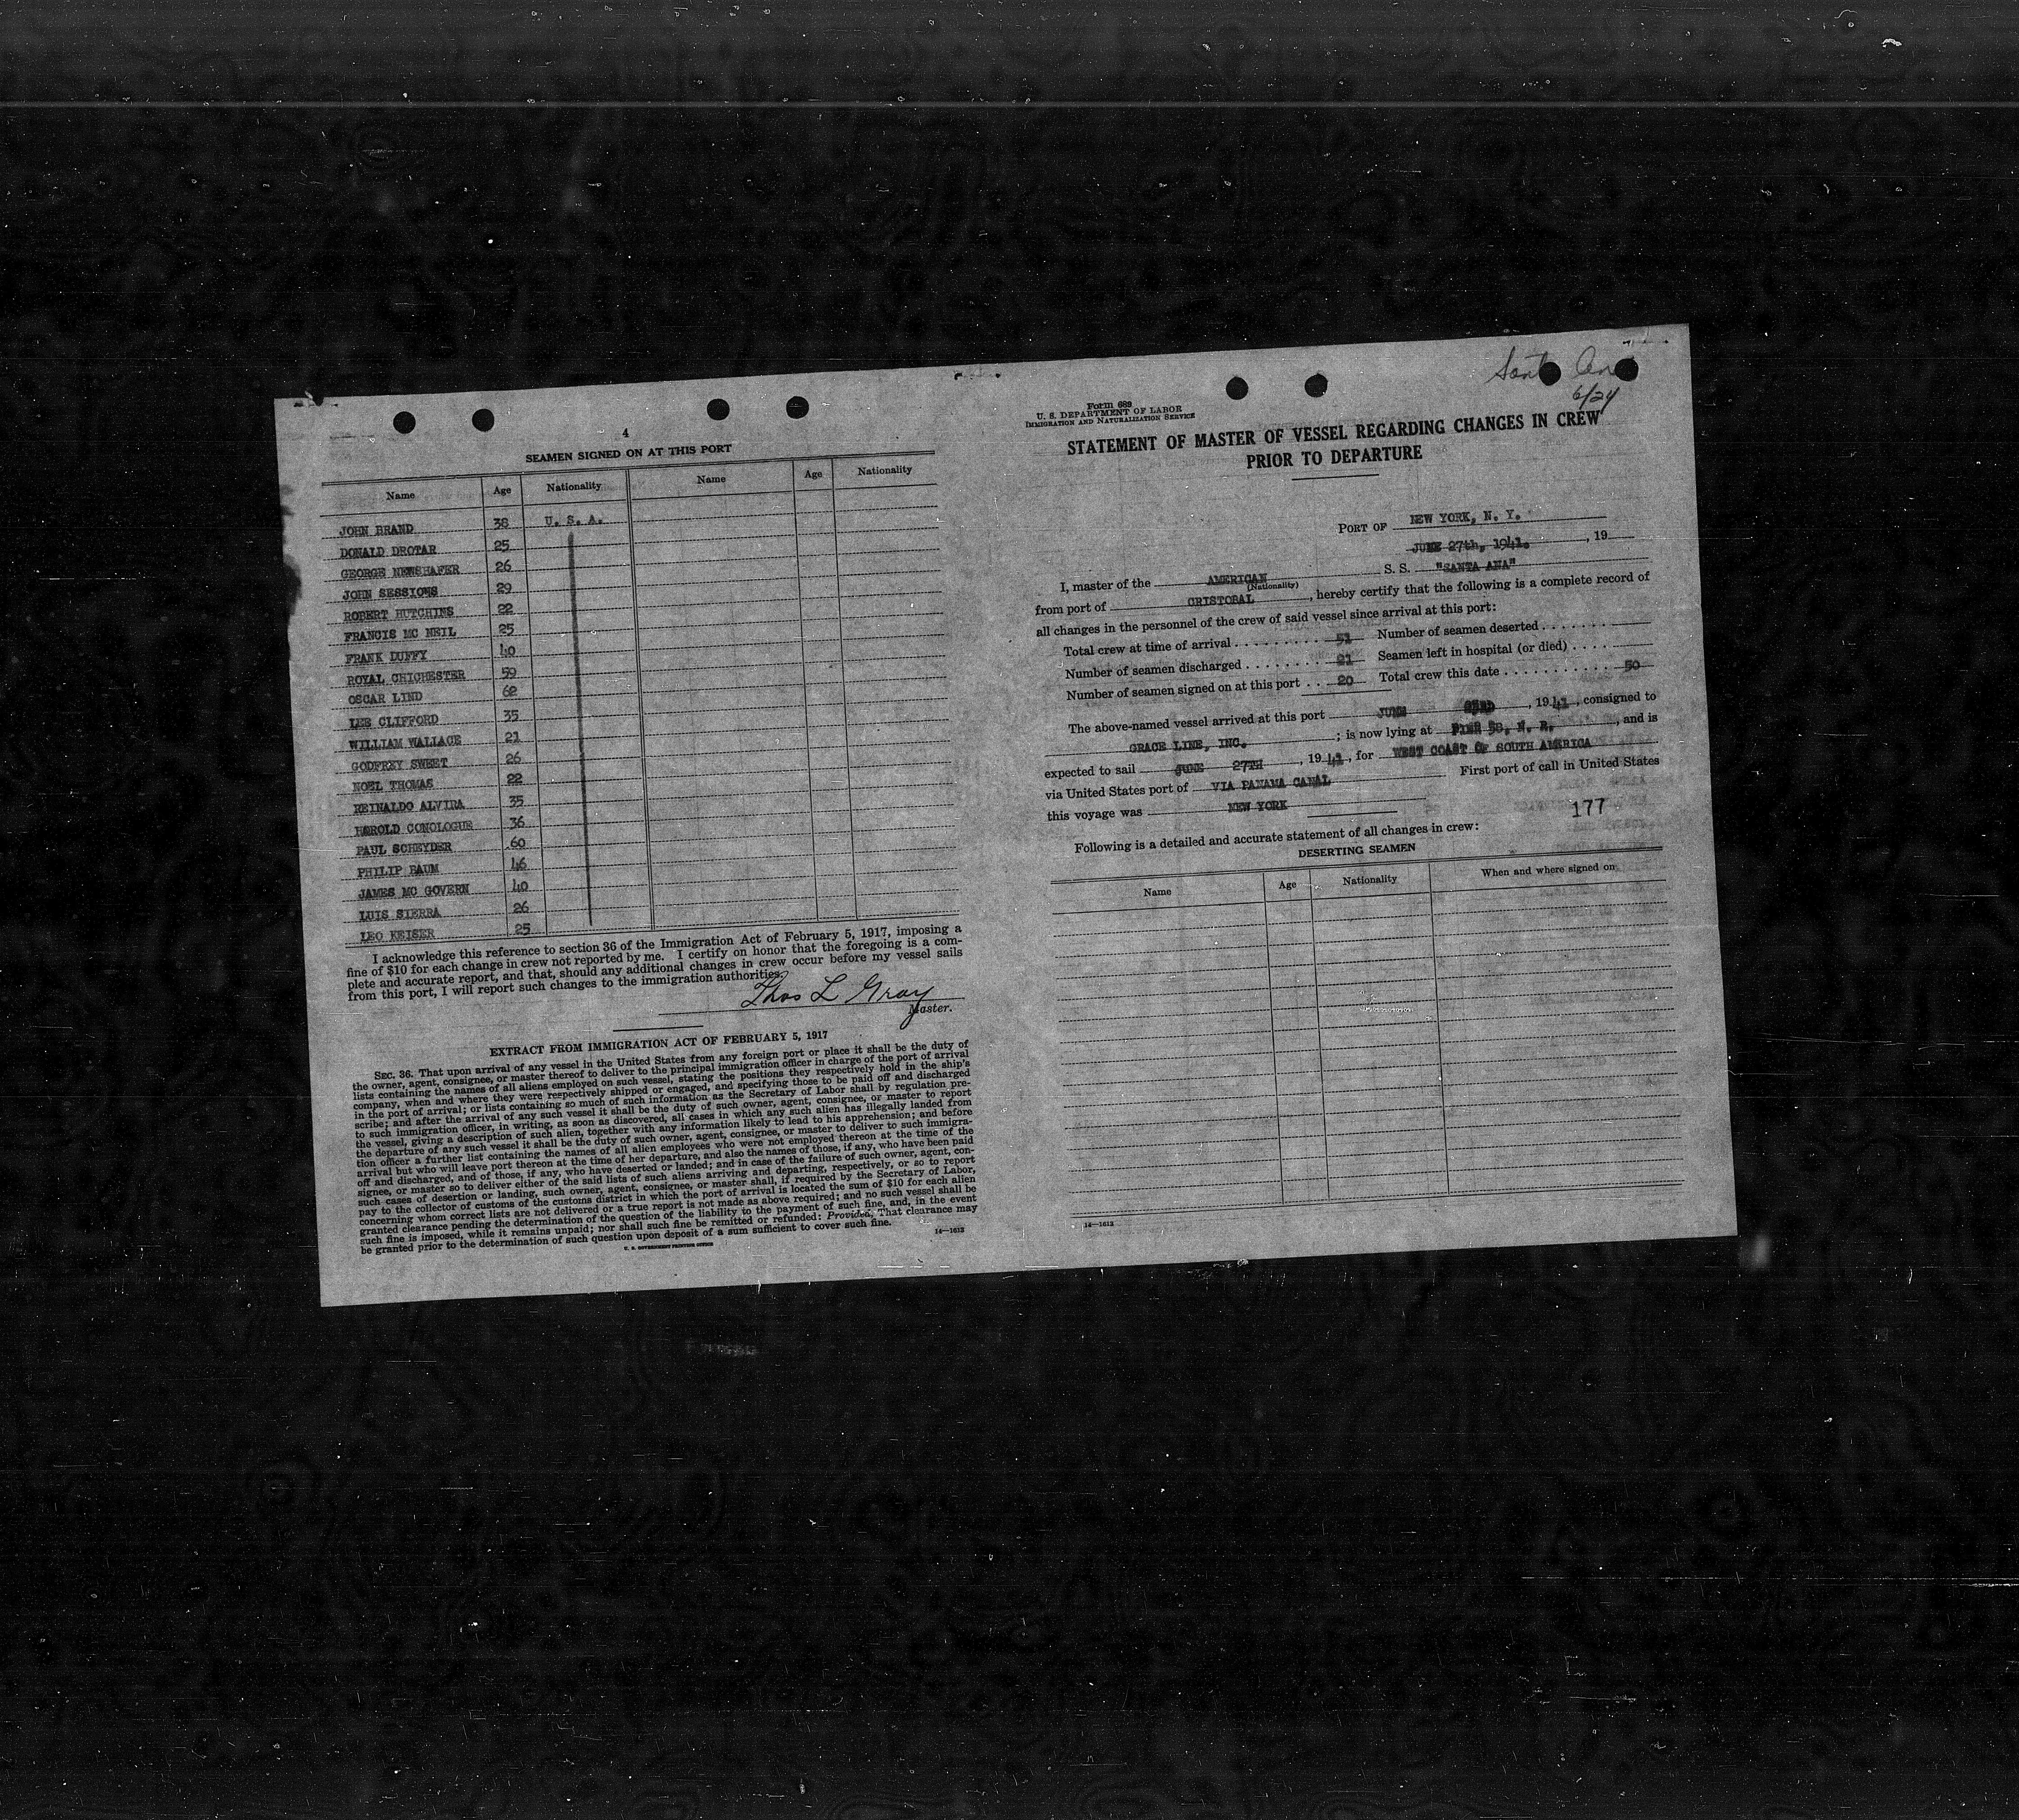 4
SEAMEN SIGNED ON AT THIS PORT
Name Age Nationality Name Age Nationality
JOHN BRAND 38 U. S. A.
DONALD DROTAR 25
GEORGE NEWSHAFER 26
JOHN SESSIONS 29
ROBERT HUTCHINS 22
FRANCIS MC NEIL 25
FRANK DUFFY 40
ROYAL CHICHESTER 59
OSCAR LIND 62
LEE CLIFFORD 35
WILLIAM WALLACE 21
GODFREY SWEET 26
NOEL THOMAS 22
REINALDO ALVIRA 35
HAROLD CONOLOGUE 36
PAUL SCHEYDER 60
PHILIP BAUM 46
JAMES MC GOVERN 40
LUIS SIERRA 26
LEO KEISER 25
I acknowledge this reference to section 36 of the Immigration Act of February 5, 1917, imposing a
fine of $10 for each change in crew not reported by me. I certify on honor that the foregoing is a com-
plete and accurate report, and that, should any additional changes in crew occur before my vessel sails
from this port, I will report such changes to the immigration authorities.
Thos L Gray
Master.
EXTRACT FROM IMMIGRATION ACT OF FEBRUARY 5, 1917
SEC. 36. That upon arrival of any vessel in the United States from any foreign port or place it shall be the duty of
the owner, agent, consignee, or master thereof to deliver to the principal immigration officer in charge of the port of arrival
lists containing the names of all aliens employed on such vessel, stating the positions they respectively hold in the ship's
company, when and where they were respectively shipped or engaged, and specifying those to be paid off and discharged
in the port of arrival; or lists containing so much of such information as the Secretary of Labor shall by regulation pre-
scribe; and after the arrival of any such vessel it shall be the duty of such owner, agent, consignee, or master to report
to such immigration officer, in writing, as soon as discovered, all cases in which any such alien has illegally landed from
the vessel, giving a description of such alien, together with any information likely to lead to his apprehension; and before
the departure of any such vessel it shall be the duty of such owner, agent, consignee, or master to deliver to such immigra-
tion officer a further list containing the names of all alien employees who were not employed thereon at the time of the
arrival but who will leave port thereon at the time of her departure, and also the names of those, if any, who have been paid
off and discharged, and of those, if any, who have deserted or landed; and in case of the failure of such owner, agent, con-
signee, or master so to deliver either of the said lists of such aliens arriving and departing, respectively, or so to report
such cases of desertion or landing, such owner, agent, consignee, or master shall, if required by the Secretary of Labor,
pay to the collector of customs of the customs district in which the port of arrival is located the sum of $10 for each alien
concerning whom correct lists are not delivered or a true report is not made as above required; and no such vessel shall be
granted clearance pending the determination of the question of the liability to the payment of such fine, and, in the event
such fine is imposed, while it remains unpaid; nor shall such fine be remitted or refunded: Provided, That clearance may
be granted prior to the determination of such question upon deposit of a sum sufficient to cover such fine.
U. S. GOVERNMENT PRINTING OFFICE 14—1613
Santa Ana
6/24
Form 689
U. S. DEPARTMENT OF LABOR
IMMIGRATION AND NATURALIZATION SERVICE
STATEMENT OF MASTER OF VESSEL REGARDING CHANGES IN CREW
PRIOR TO DEPARTURE
PORT OF NEW YORK, N. Y.
JUNE 27th, 1941. , 19
I, master of the AMERICAN S. S. "SANTA ANA"
(Nationality)
from port of CRISTOBAL , hereby certify that the following is a complete record of
all changes in the personnel of the crew of said vessel since arrival at this port:
Total crew at time of arrival 51 Number of seamen deserted
Number of seamen discharged 21 Seamen left in hospital (or died)
Number of seamen signed on at this port 20 Total crew this date 50
The above-named vessel arrived at this port JUNE 23RD , 1941 , consigned to
GRACE LINE, INC. ; is now lying at PIER 58, N. R. , and is
expected to sail JUNE 27TH , 1941 , for WEST COAST OF SOUTH AMERICA
via United States port of VIA PANAMA CANAL First port of call in United States
this voyage was NEW YORK
177
Following is a detailed and accurate statement of all changes in crew:
DESERTING SEAMEN
Name Age Nationality When and where signed on
14—1613